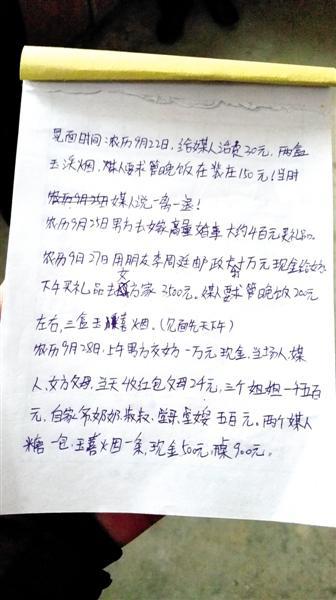 见面时间:农历9月22日,给媒人话费30元,两盒
玉溪烟,媒人要求管晚饭在装在150元(当时
媒人说一离一退!
农历9月25日男方去嫁商量婚事大约4百元买礼品。
农历9月27日用朋友李周廷邮政十万元现金给
下午买礼品去女方家3500元。媒人要求管晚饭200元
左右,三盒玉喜烟。(见面先天下午)
农历9月28日,上午男方交女方一万元现金,当场人,媒
人,女方父母,当天收红包父母24元,三个姐姐一千五百
元,自家爷奶奶,叔叔,五百元。两个媒人
糖一包,玉喜烟一条,现金50元,桌900元。